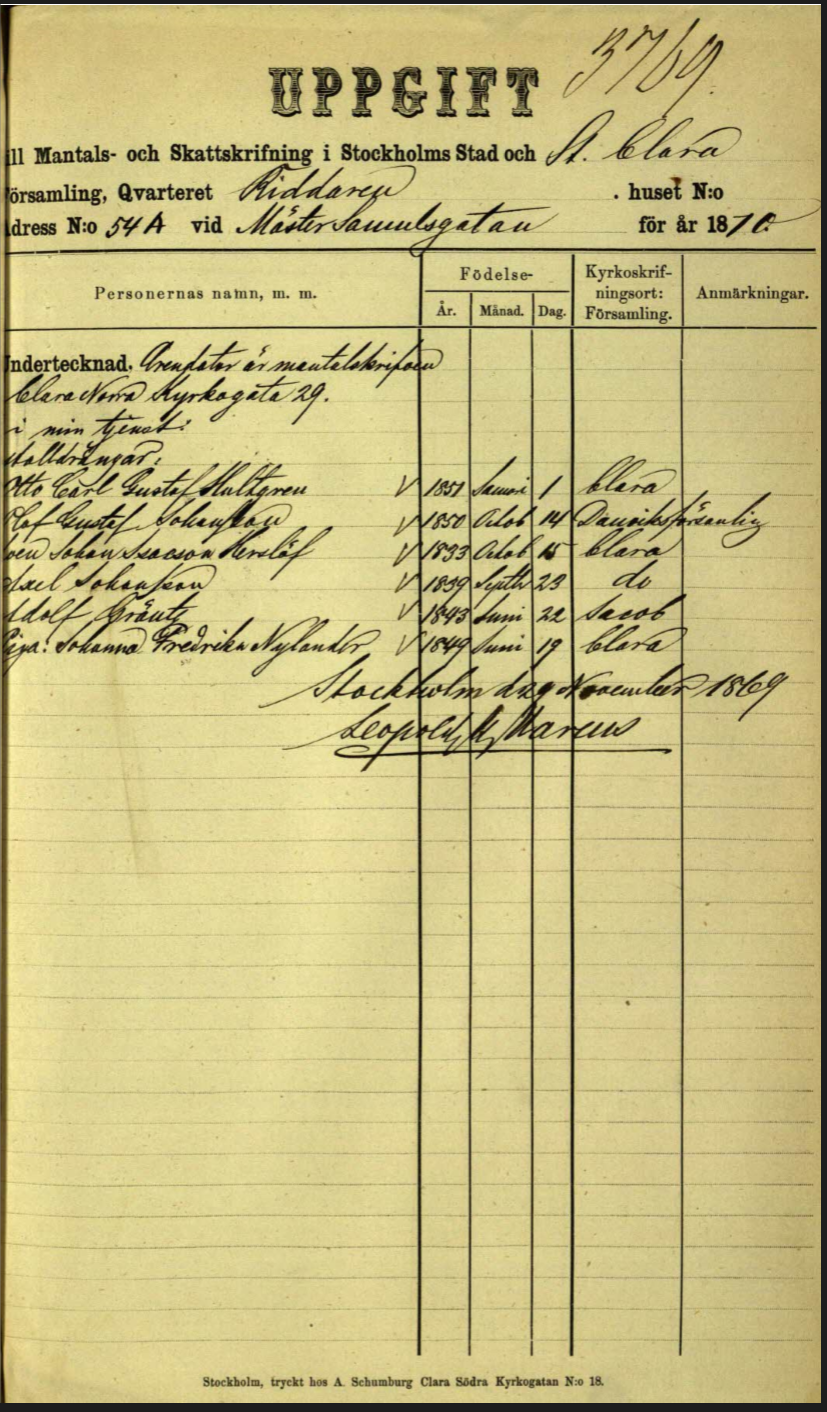 3769.
UPPGIFT
ill Mantals- och Skattskrifning i Stockholms Stad och St. Clara
örsamling, Qvarteret Riddaren . huset N:o
dress N:o 54 A vid Mäster Samuelsgatan för år 1870.
Personernas namn, m. m. Födelse- År. Månad. Dag. Kyrkoskrif-ningsort: Församling. Anmärkningar.
ndertecknad. Arendator är mantalskrifven
Clara Norra Kyrkogata 29.
i min tjenst:
stalldrängar:
Otto Carl Gustaf Hultgren V 1851 Januari 1 Clara
Olof Gustaf Johansson V 1850 Octob 14 Danviksförsamling
ven Johan Isacson Herslöf V 1833 Octob 15 Clara
Axel Johansson V 1839 Septb 23 do
Adolf Fräntz V 1843 Juni 22 Jacob
Piga: Johanna Fredrika Nylander V 1849 Juni 19 Clara
Stockholm d 29 November 1869
Leopold Marcus
Stockholm, tryckt hos A. Schumburg Clara Södra Kyrkogatan N:o 18.